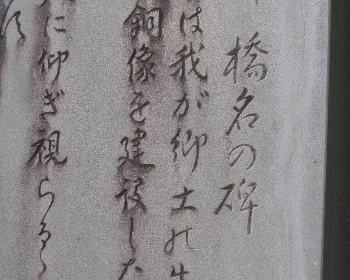 橋名の碑
は我が郷土の生
銅像を建設した
に仰ぎ視らるゝ